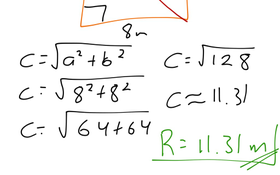 8m
C=√a²+b²
C=√8²+8²
C=√64+64
C=√128
C≈11.31
R=11.31m